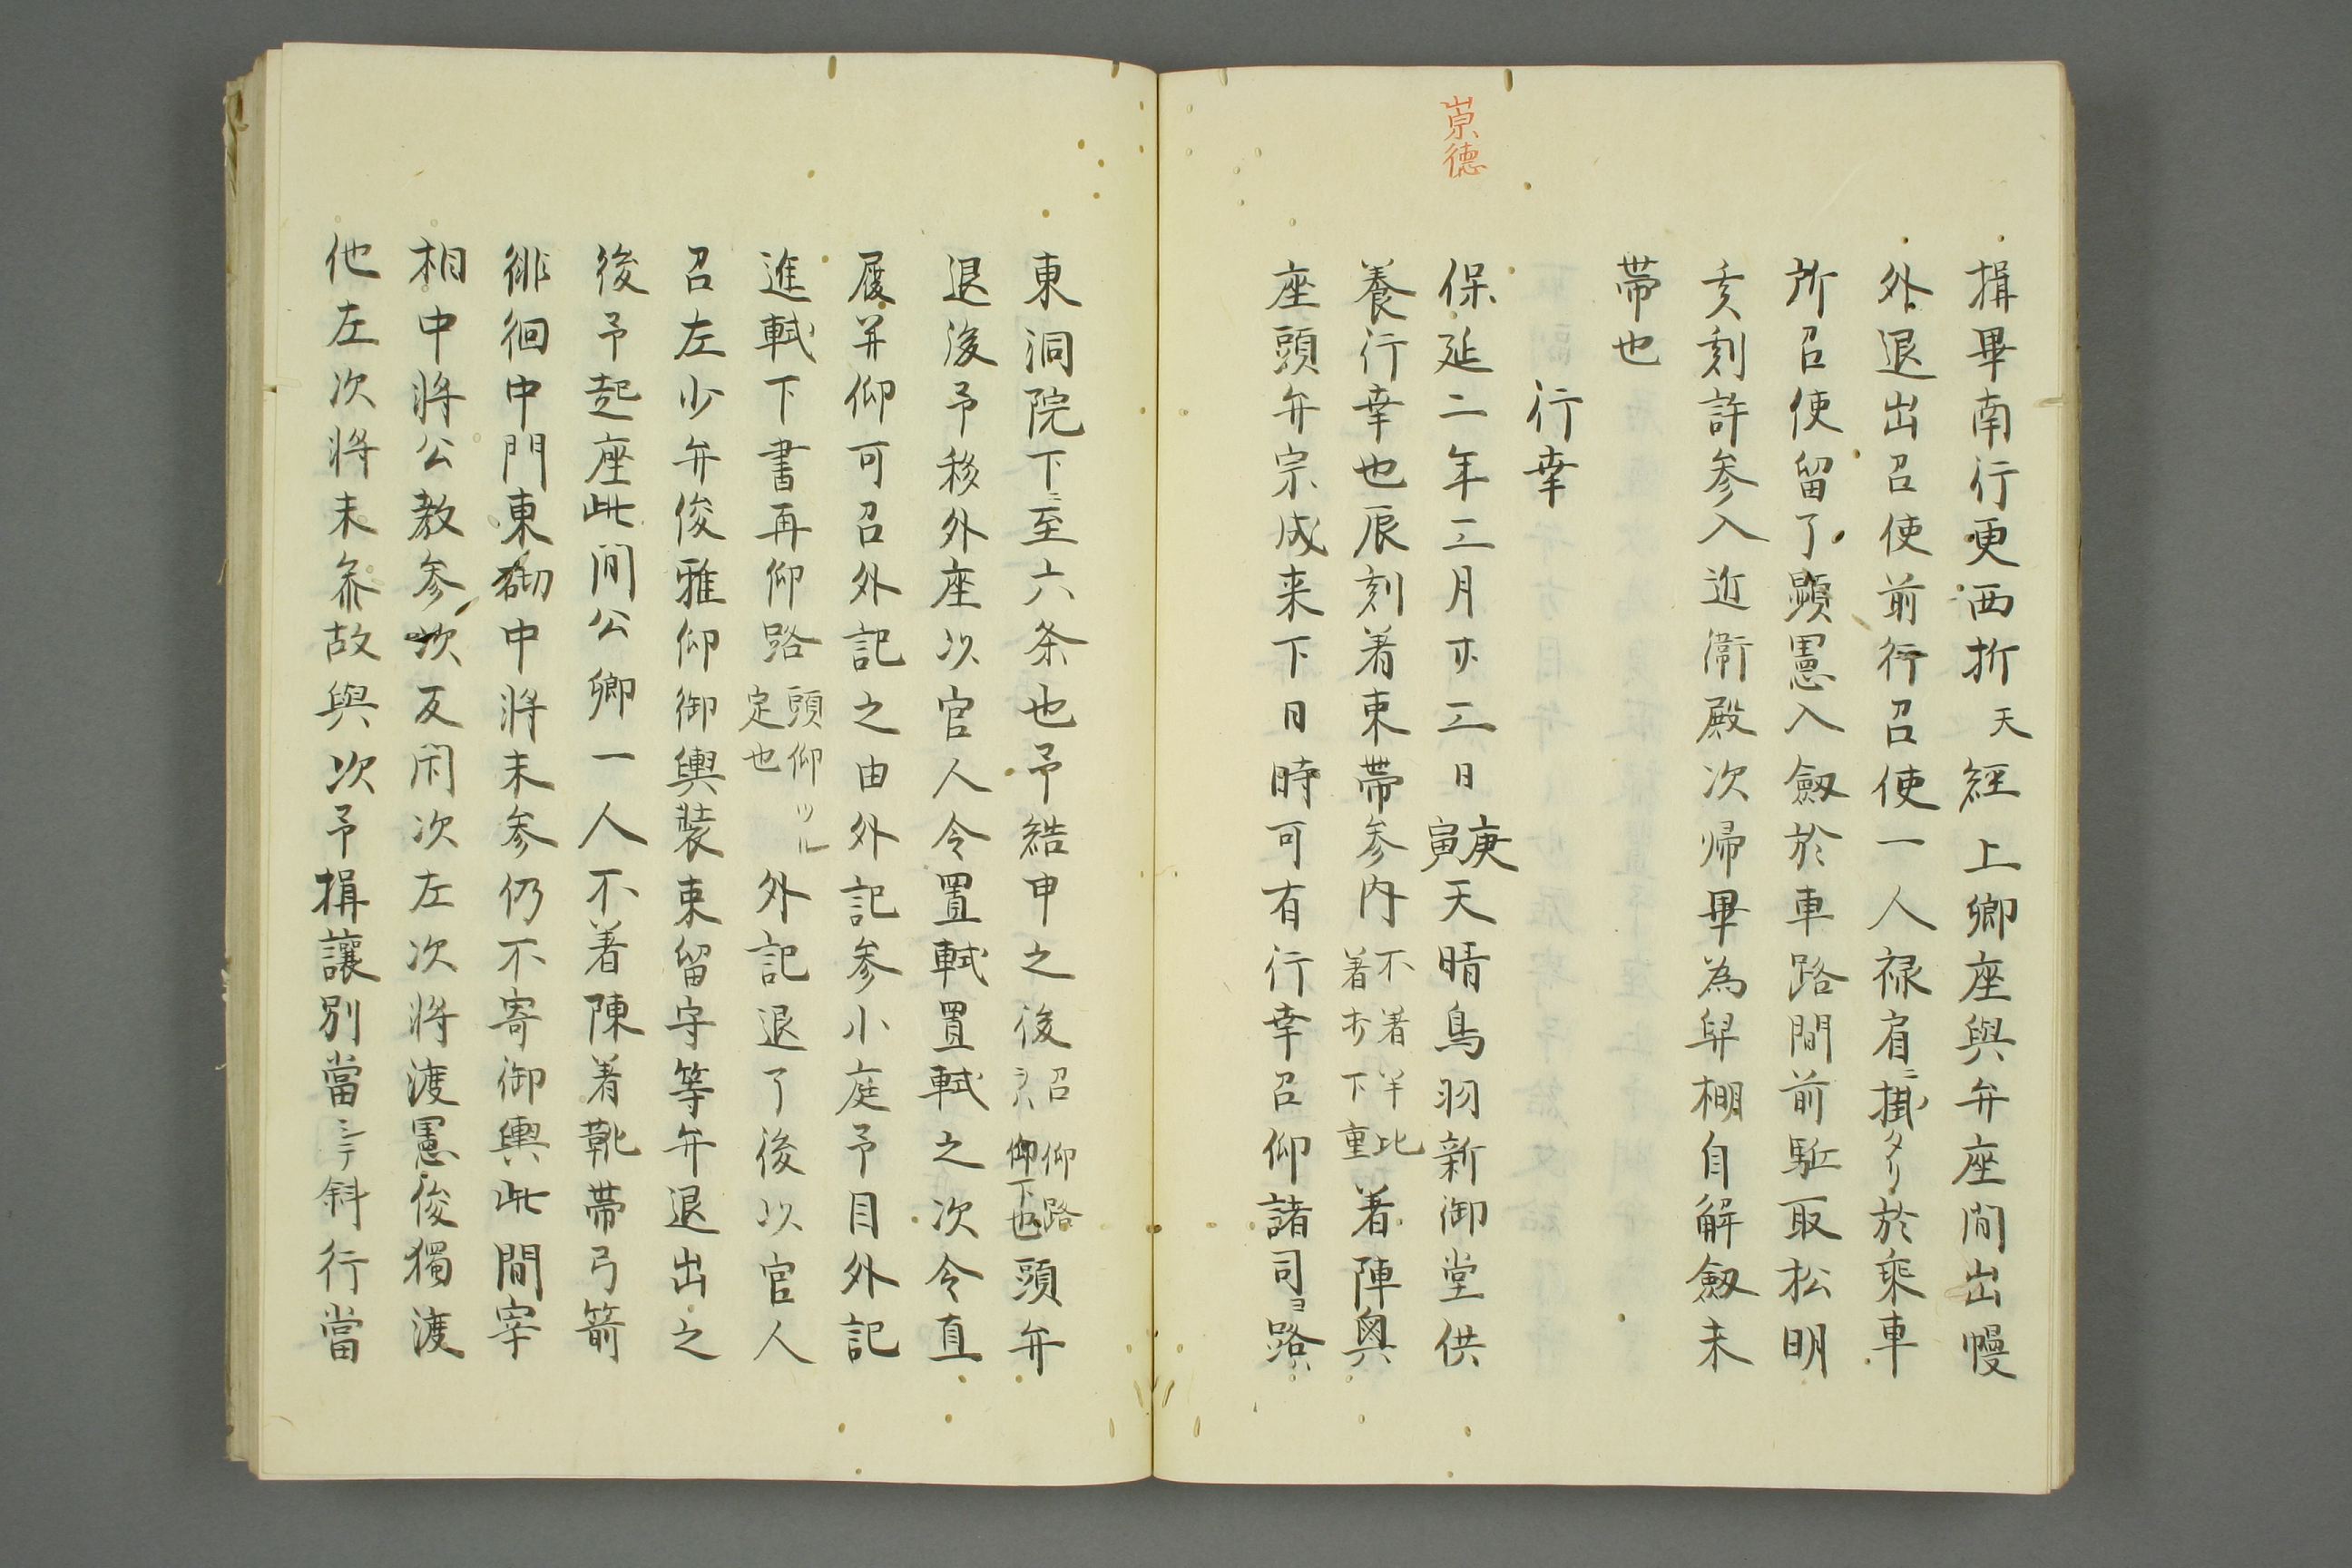 揖畢南行更西折天経上卿座與弁座間出幔
外退出召使前行召使一人禄肩ニ掛タリ於乗車
所召使留了顕憲入劔於車路間前駈取松明
亥刻許参入近衛殿次帰畢為舁棚自解劔未
帯也
行幸
崇徳
保延二年三月廿三日庚寅天晴鳥羽新御堂供
養行幸也辰刻着束帯参内不着半比着下重着陣奥
座頭弁宗成来下日時可有行幸召仰諸司ヨ路
東洞院下ニ至六条也予結申之後召仰路仰下也頭弁
退後予移外座以官人令置軾置軾之次令直
履并仰可召外記之由外記参小庭予目外記
進軾下書再仰路頭仰ツル定也外記退了後以官人
召左少弁俊雅仰御輿装束留守等弁退出之
後予起座此間公卿一人不着陳着靴帯弓箭
徘徊中門東砌中将未参仍不寄御輿此間宰
相中将公教参次反閇次左次将渡憲俊獨渡
他左次将未参故與次予揖讓別當斜行當